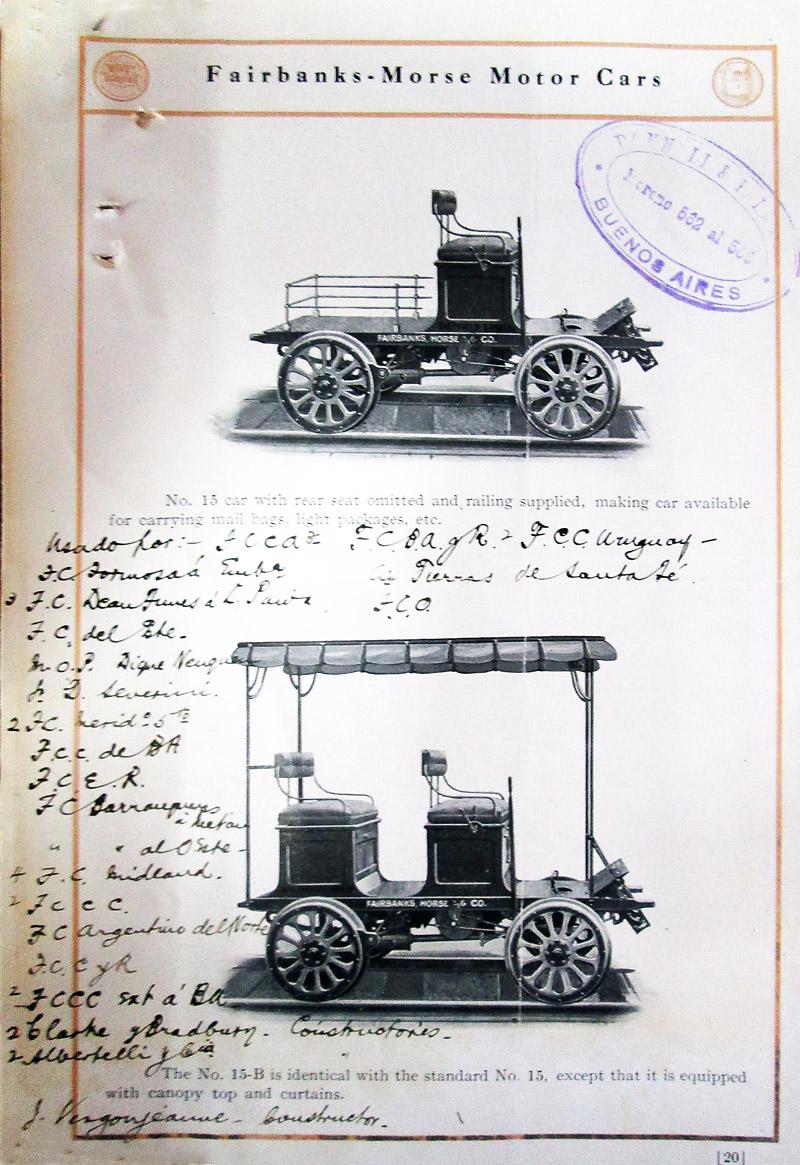 Fairbanks-Morse Motor Cars
Moreno 562 al
BUENOS AIRES
FAIRBANKS, MORSE & CO.
No. 15 car with rear seat omitted and railing supplied, making car available
for carrying mail bags, light packages, etc.
Usado por:- F.C.C.A. F.C.B.A. y R. 2 F.C.C. Uruguay -
F.C. Formosa á Emb. Cia Tierras de Santa Fé.
3 F.C. Dean Funes á L. F.C.O.
F.C. del Este.
M.O.P. Dique Neuquen
D. Severini.
2 F.C. Merid. 5
F.C.C. de BA
F.C.E.R.
F.C.
" " al Oeste -
4 F.C. Midland.
2 F.C.C.C.
F.C. Argentino del Norte
F.C.C y R
2 F.C.C.C. ext á BA
2 Clarke y Bradbury. Constructores.
2 Albertelli y Cia "
FAIRBANKS, MORSE & CO.
The No. 15-B is identical with the standard No. 15, except that it is equipped
with canopy top and curtains.
J. Vergonjeanne - Constructor.
[20]